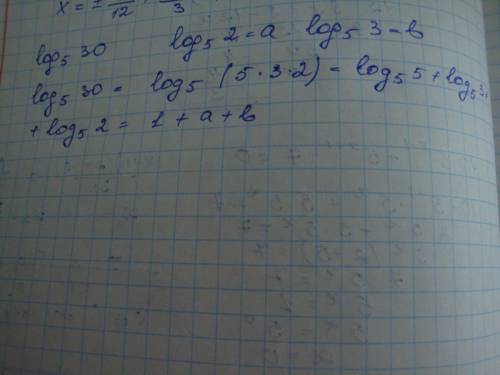 x = ± /12 , /3
log₅ 30 log₅ 2 = a. log₅ 3 = b
log₅ 30 = log₅ (5 · 3 · 2) = log₅ 5 + log₅ 3 +
+ log₅ 2 = 1 + a + b